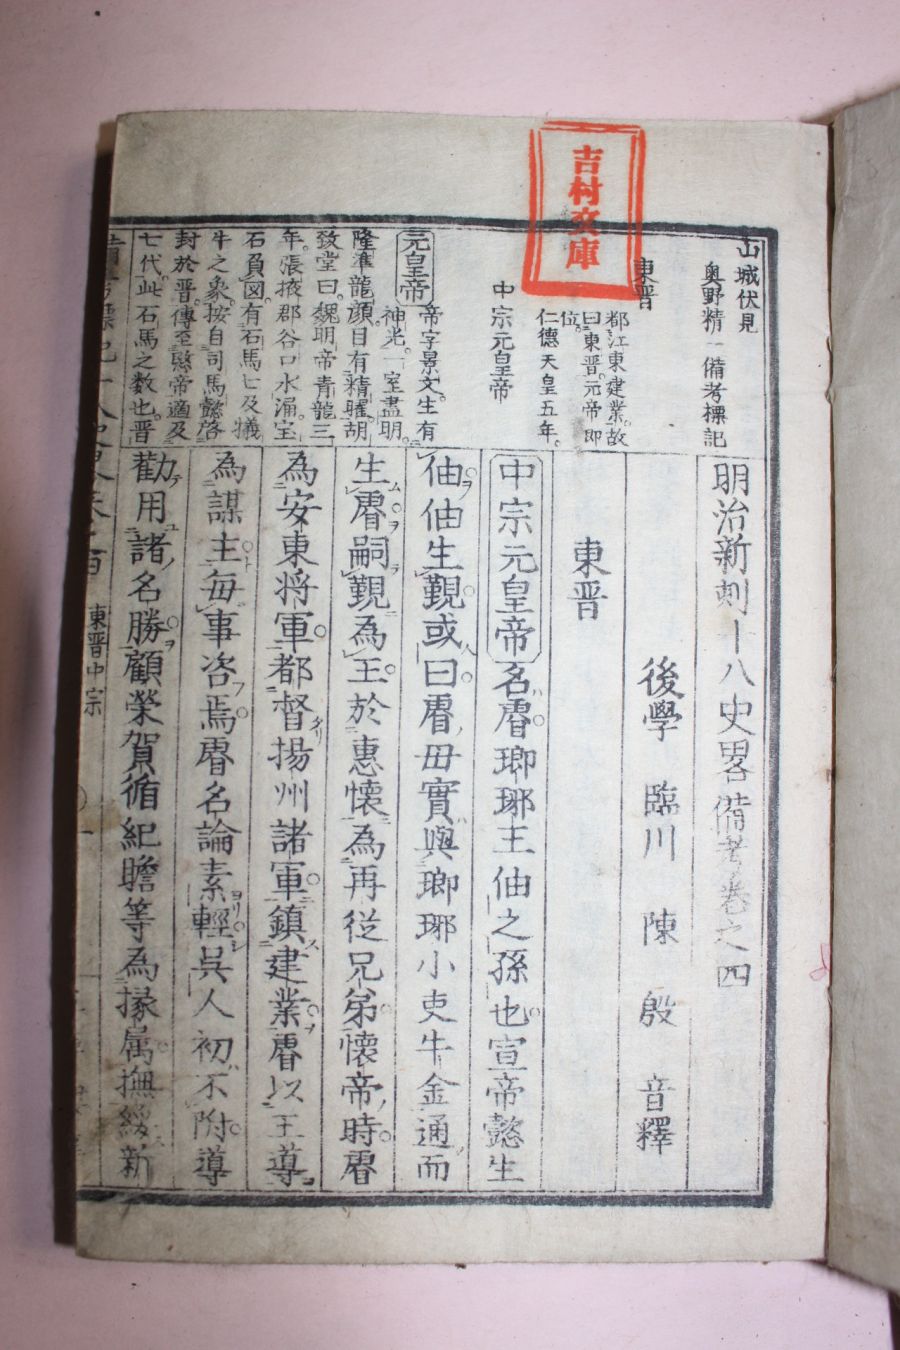 吉村文庫
山城伏見
奥野精一備考標記
東晋
都江東建業。故
曰東晋。元帝即
位。
仁德天皇五年。
中宗元皇帝
元皇帝
帝字景文。生有
神光。一室盡明。
隆準龍顔。目有精曜。胡
致堂曰。魏明帝青龍三
年。張掖郡谷口水涌。宝
石負図。有石馬七及犠
牛之象。按自司馬懿啓
封於晋。傳至愍帝適及
七代。此石馬之数也。晋
明治新刻十八史畧備考卷之四
後學 臨川 陳殷 音釋
東晋
中宗元皇帝名睿瑯琊王伷之孫也宣帝懿生
伷伷生覲或曰睿毋實與瑯琊小吏牛金通而
生睿嗣覲為王於惠懷為再從兄弟懷帝時睿
為安東将軍都督揚州諸軍鎮建業睿以王導
為謀主毎事咨焉睿名論素輕呉人初不附導
勸用諸名勝顧榮賀循紀瞻等為掾属撫綏新
東晋中宗